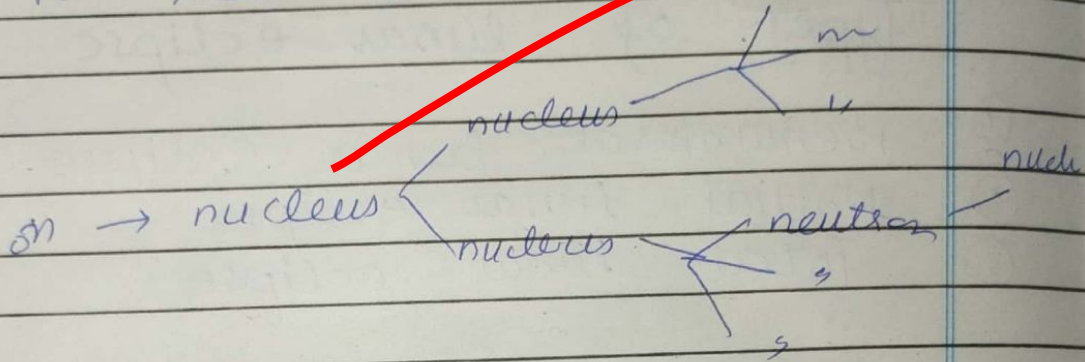 n
nucleus
nucl
n → nucleus
neutron
nucleus